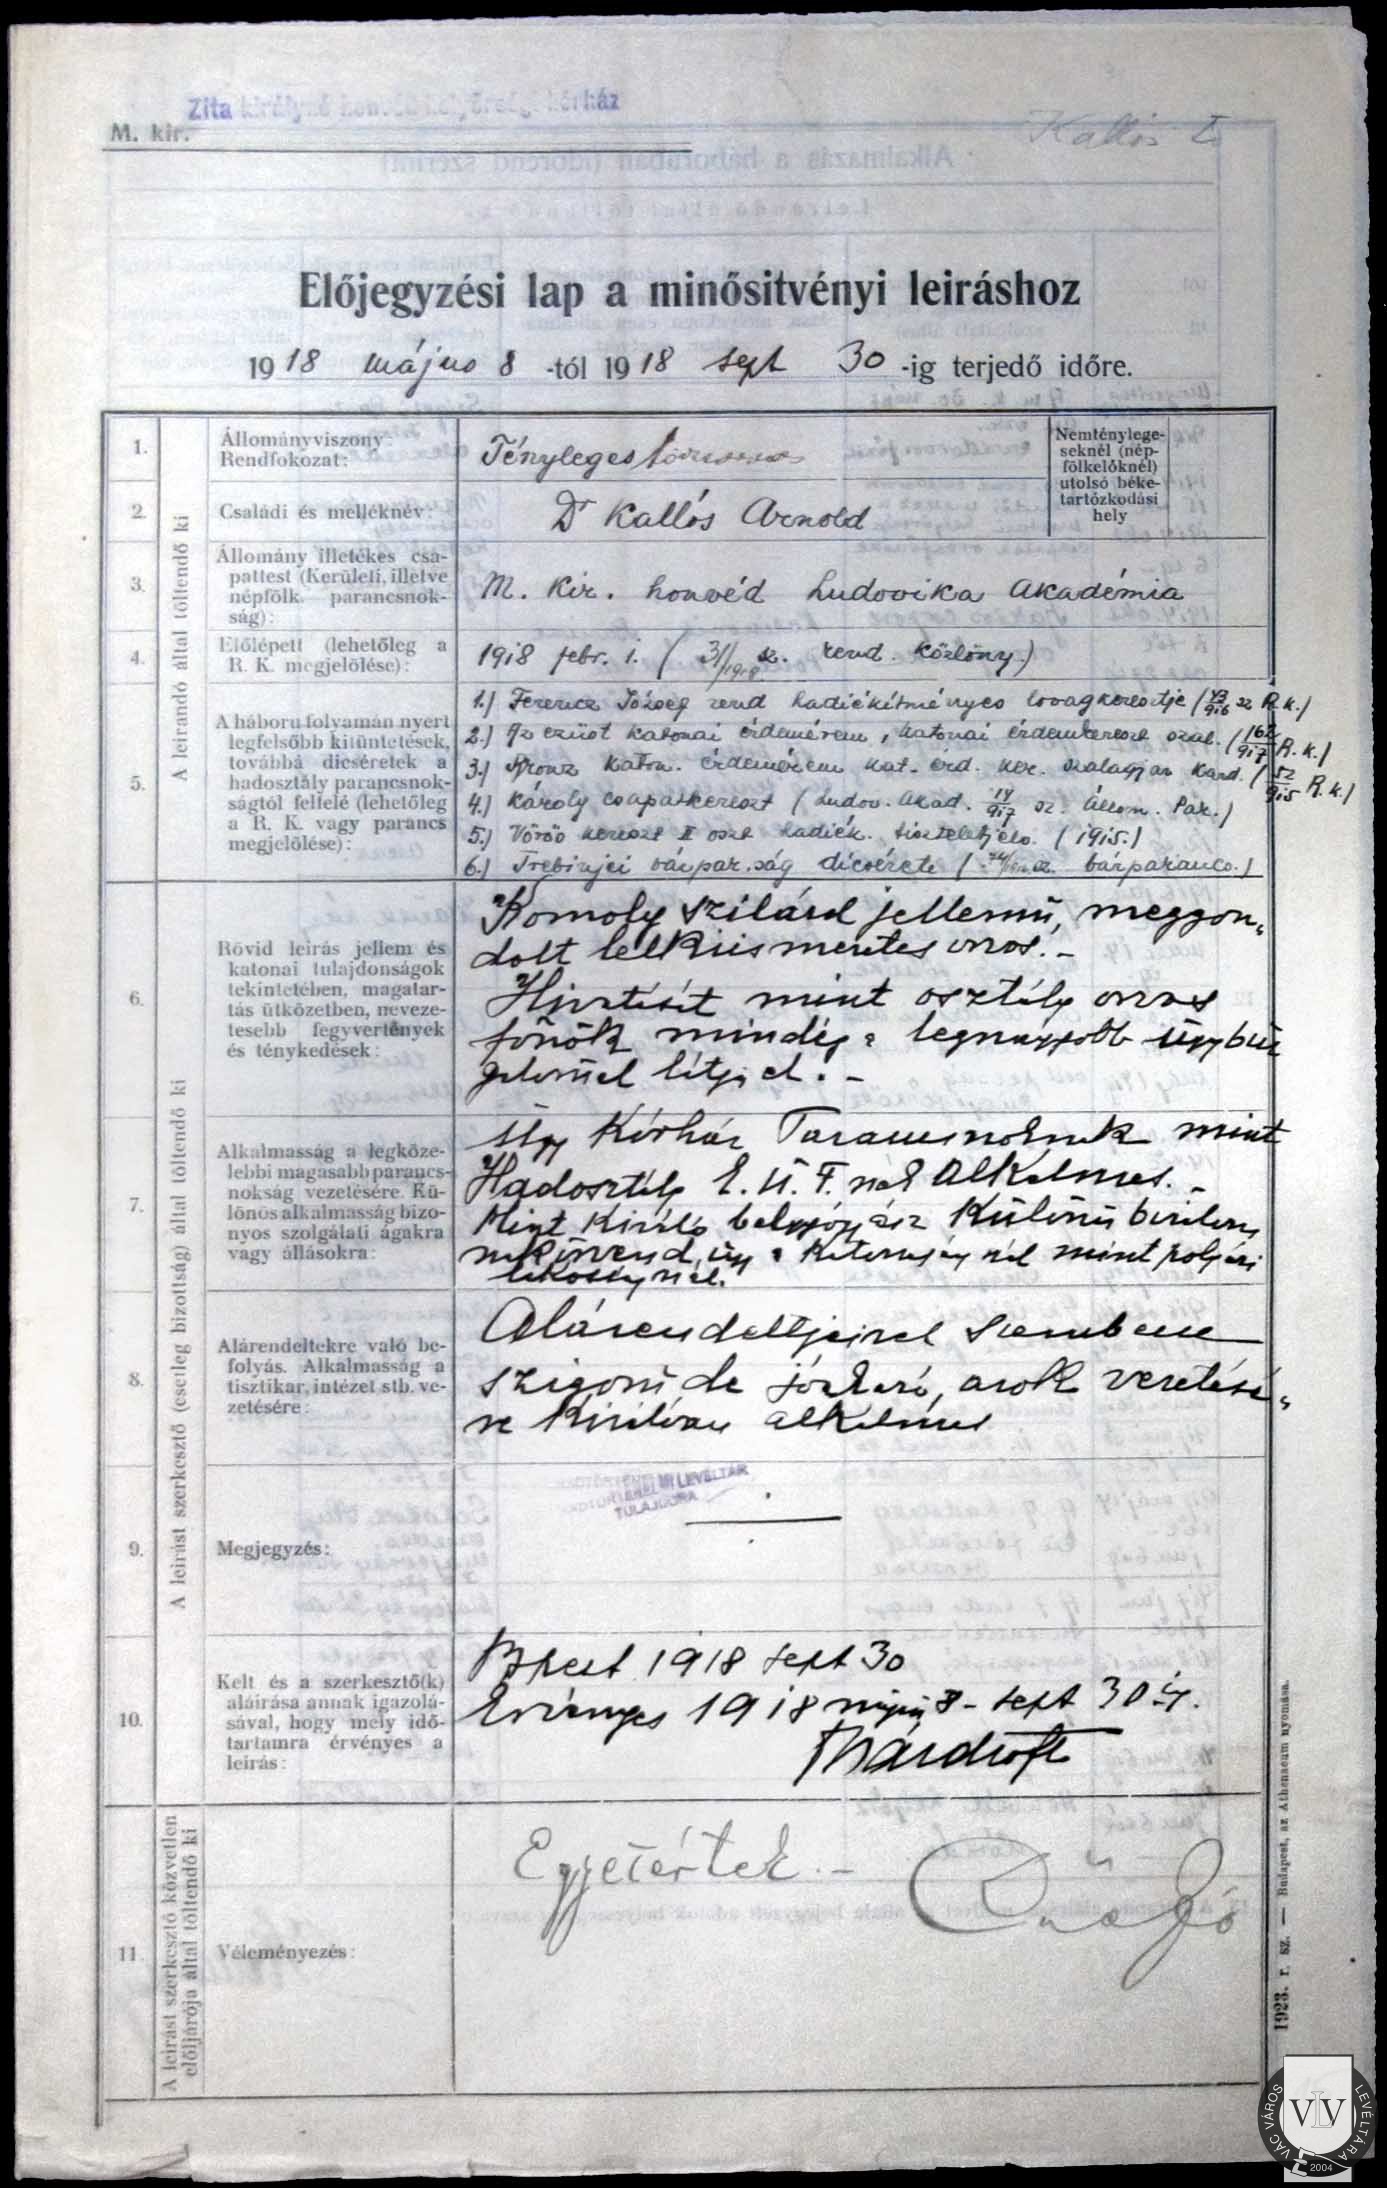 Zita királyné honvéd helyőrségi kórház
M. kir.
Kallós
Előjegyzési lap a minősitvényi leiráshoz
1918 május 8 -tól 1918 sept 30 -ig terjedő időre.
A leirandó által töltendő ki
1.
Állományviszony:
Rendfokozat:
Tényleges törzsorvos
Nemténylege-
seknél (nép-
fölkelőknél)
utolsó béke-
tartózkodási
hely
2.
Családi és melléknév:
Dr Kallós Arnold
3.
Állomány illetékes csa-
pattest (Kerületi, illetve
népfölk. parancsnok-
ság):
M. kir. honvéd Ludovika Akadémia
4.
Előlépett (lehetőleg a
R. K. megjelölése):
1918 febr. 1. ( 31/1918 sz. rend. közlöny.)
5.
A háboru folyamán nyert
legfelsőbb kitüntetések,
továbbá dicséretek a
hadosztály parancsnok-
ságtól felfelé (lehetőleg
a R. K. vagy parancs
megjelölése):
1.) Ferencz József rend hadiékítményes lovagkeresztje (43/916 sz R.k.)
2.) Az ezüst katonai érdemérem, katonai érdemkereszt szal. (162/917 R.k.)
3.) Bronz katon. érdemérem kat. érd. ker. szalagján kard. (52/915 R.k.)
4.) Károly csapatkereszt (Ludov. Akad. 14/917 sz. Állom. Par.)
5.) Vörös kereszt II oszt hadiék. tiszteletjelv. (1915.)
6.) Trebinjei várpar.ság dícsérete ( sz. várparancs.)
A leirást szerkesztő (esetleg bizottság) által töltendő ki
6.
Rövid leirás jellem és
katonai tulajdonságok
tekintetében, magatar-
tás ütközetben, neveze-
tesebb fegyvertények
és ténykedések:
Komoly szilárd jellemű, meggon„
dolt lelkiismeretes orvos. -
Hivatását mint osztály orvos
főnök mindég a legnagyobb ügybuz
galommal látja el. -
7.
Alkalmasság a legköze-
lebbi magasabb parancs-
nokság vezetésére. Kü-
lönös alkalmasság bizo-
nyos szolgálati ágakra
vagy állásokra:
Úgy Kórház Parancsnoknak mint
Hadosztály E.Ü.F. nek Alkalmas. -
Mint Kiváló belgyógyász Különös bizalom
nak örvend, úgy a Katonaság nál mint polgári
lakosságnál.
8.
Alárendeltekre való be-
folyás. Alkalmasság a
tisztikar, intézet stb. ve-
zetésére:
Alárendeltjeivel szemben
szigorú de jóakaró, azok vezetésé„
re kiválóan alkalmas
HADTÖRTÉNELMI LEVÉLTÁR
TULAJDONA
9.
Megjegyzés:
10.
Kelt és a szerkesztő(k)
aláirása annak igazolá-
sával, hogy mely idő-
tartamra érvényes a
leirás:
Bpest 1918 sept 30
Érvényes 1918 május 8 - sept 30 ig.
A leirást szerkesztő közvetlen
előljárója által töltendő ki
11.
Véleményezés:
Egyetértek. -
1923. r. sz. — Budapest, az Athenaeum nyomása.
VÁC VÁROS LEVÉLTÁRA
VLV
2004